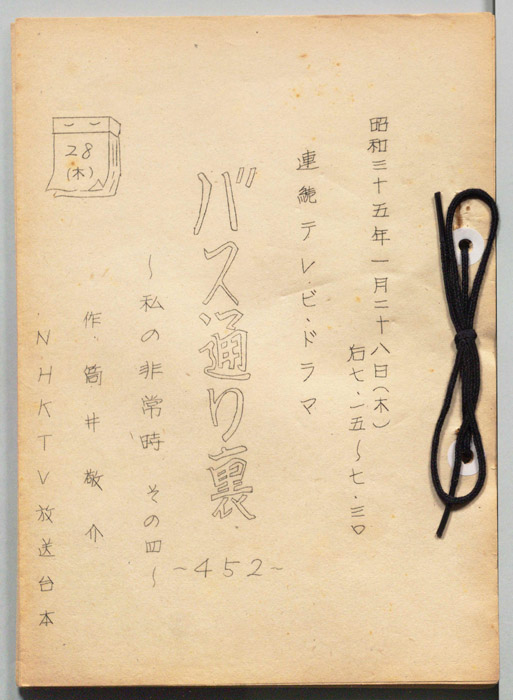 昭和三十五年一月二十八日(木)
后七・一五～七・三〇
連続テレビ・ドラマ
バス通り裏
～452～
～私の非常時 その四～
作 筒井敬介
NHKTV放送台本
28
(木)